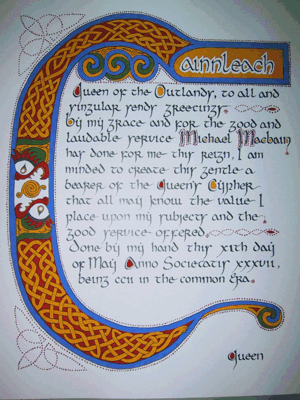 Cainnleach
Queen of the Outlands, to all and
singular sends greetings.
By my grace and for the good and
laudable service Michael Macbain
has done for me this reign, I am
minded to create this gentle a
bearer of the Queen's Cypher
that all may know the value I
place upon my subject and the
good service offered.
Done by my hand this xith day
of May Anno Societatis xxxvii,
being ccii in the common era.
Queen